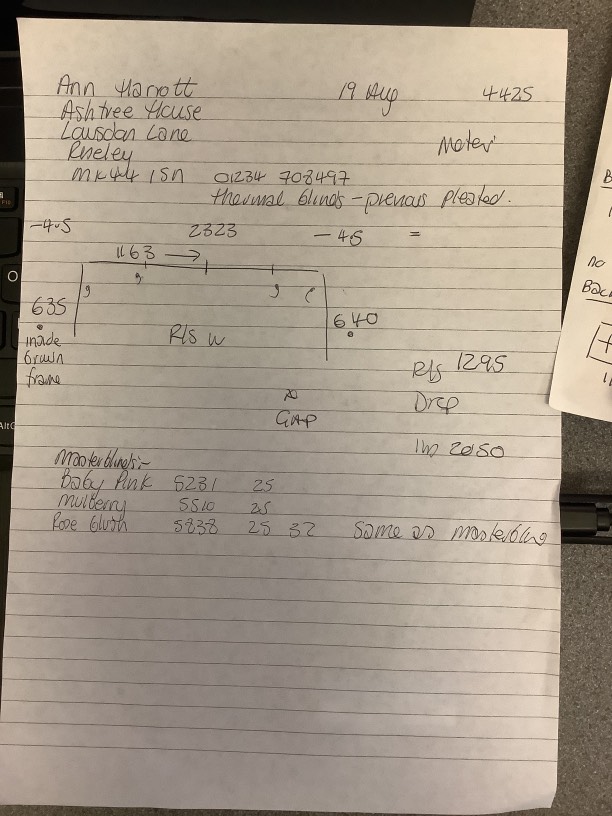 Ann Harrott 19 Aug 4425
Ashtree House
Lane
Meter
MK44 1SN 01234 708497
thermal blinds - previous pleated.
-4.5 2323 -45 =
1163 →
635 640
inside
brown
frame
R/s W
R/s 1295
Drop
GAP
1m 2050
Masterblinds:-
Baby Pink 5231 25
Mulberry 5510 25
Rose blush 5838 25 32 Same as masterblind
B
no
Bac